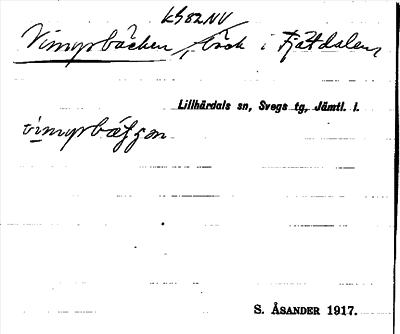 k982NV
Vimyrbäcken, bäck i Fjätdalen,
Lillhärdals sn, Svegs tg, Jämtl. l.
vimyrbäʃʃɛn
S. ÅSANDER 1917.